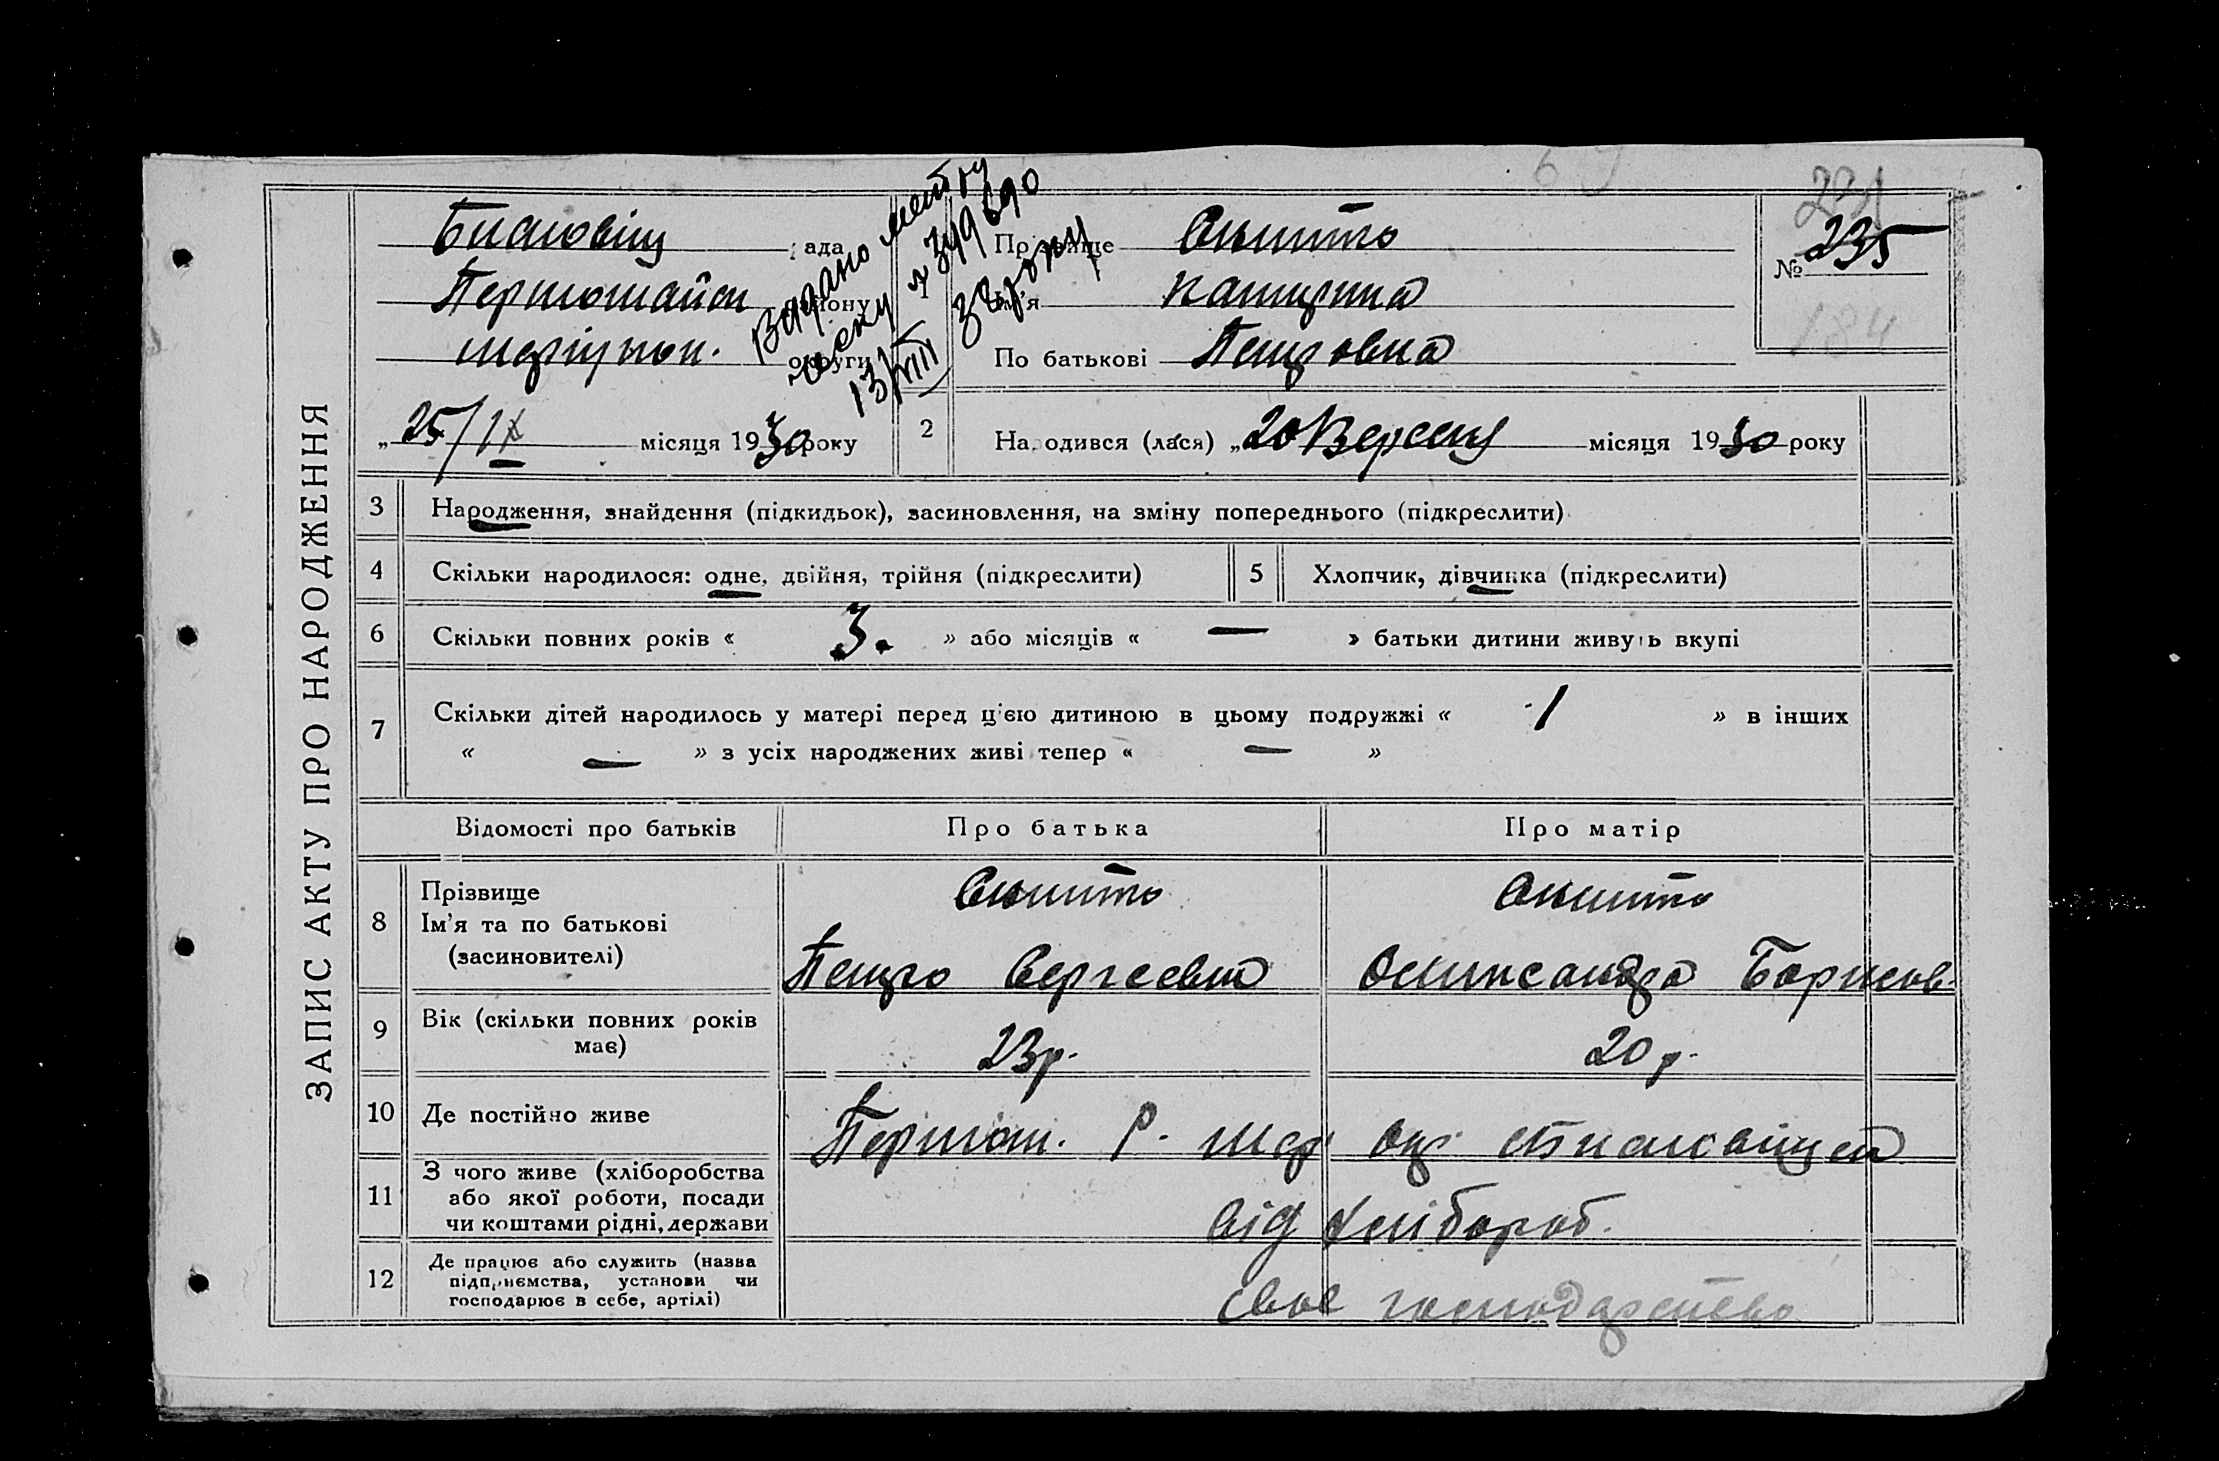 231
№ 235
184
рада
району
Маріупол. округи
Видано метку
13/VIII 38 року
Прізвище
1 Ім'я Катерина
По батькові Петровна
„25/IX місяця 1930 року
2 Народився (лася) „20 Вересня місяця 1930 року
ЗАПИС АКТУ ПРО НАРОДЖЕННЯ
3 Народження, знайдення (підкидьок), засиновлення, на зміну попереднього (підкреслити)
4 Скільки народилося: одне, двійня, трійня (підкреслити) 5 Хлопчик, дівчинка (підкреслити)
6 Скільки повних років « 3. » або місяців « — » батьки дитини живуть вкупі
7 Скільки дітей народилось у матері перед ц'єю дитиною в цьому подружжі « 1 » в інших
« — » з усіх народжених живі тепер « — »
Відомості про батьків Про батька Про матір
8 Прізвище
Ім'я та по батькові
(засиновителі)
Петро Сергеевич Олександра Борисов.
9 Вік (скільки повних років
має)
23 р. 20 р.
10 Де постійно живе
Першом. Р. Мар Окр
11 З чого живе (хліборобства
або якої роботи, посади
чи коштами рідні, держави
від хлібороб.
12 Де працює або служить (назва
підприємства, установи чи
господарює в себе, артілі)
своє господарство